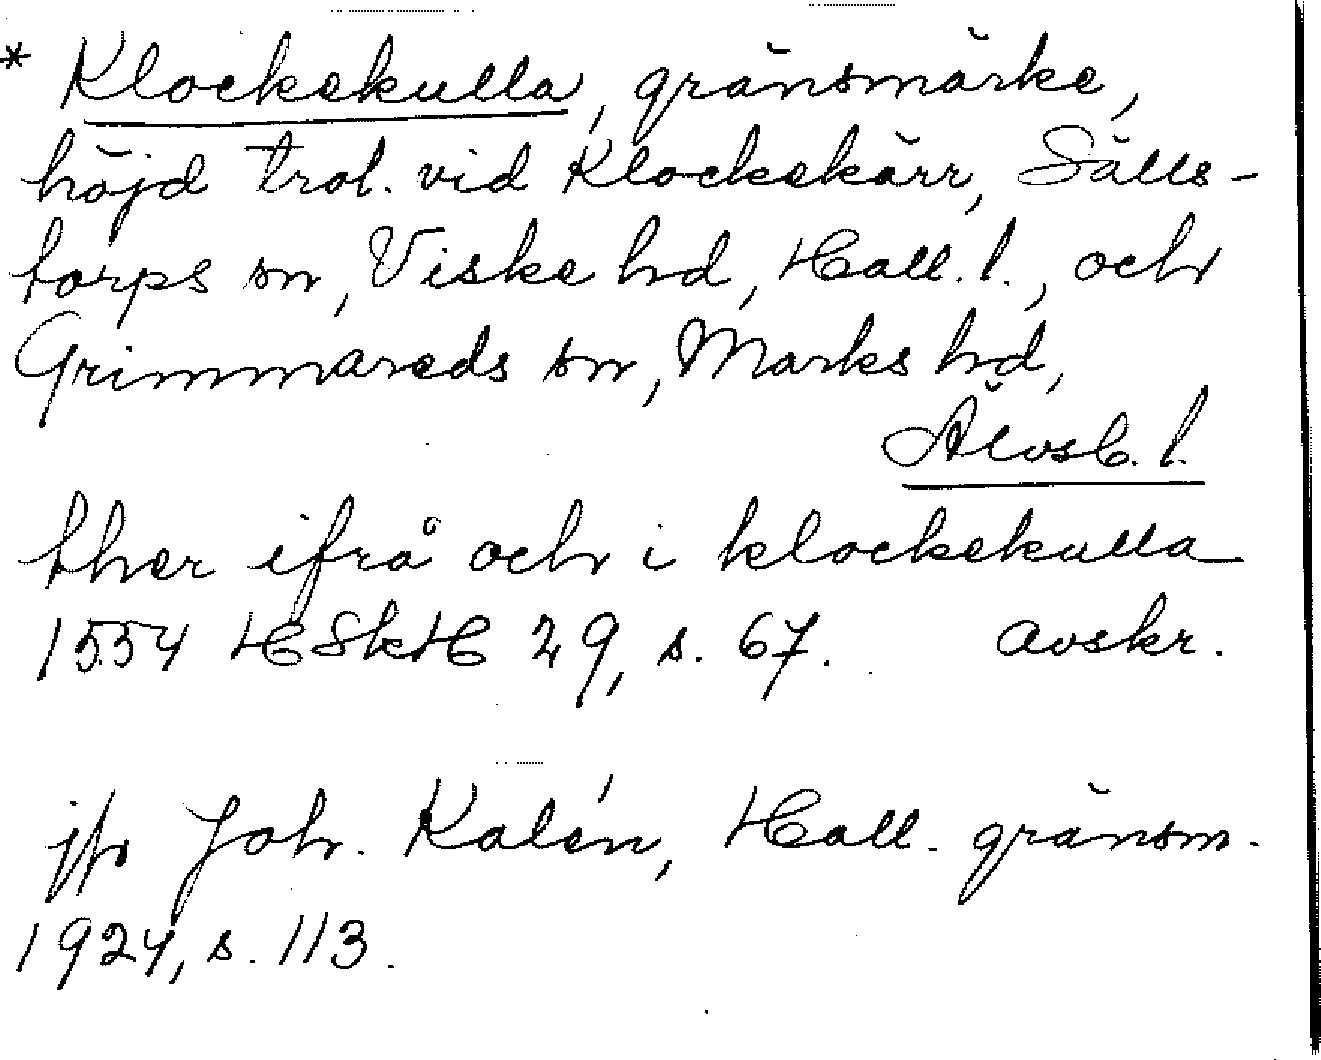 * Klockekulla, gränsmärke,
höjd trol. vid Klockekärr, Sälls-
torps sn, Viske hd, Hall. l., och
Grimmareds sn, Marks hd,
Älvsb. l.
ther ifrå och i klockekulla
1554 HSkH 29, s. 67. avskr.
jfr Joh. Kalén, Hall. gränsm.
1924, s. 113.